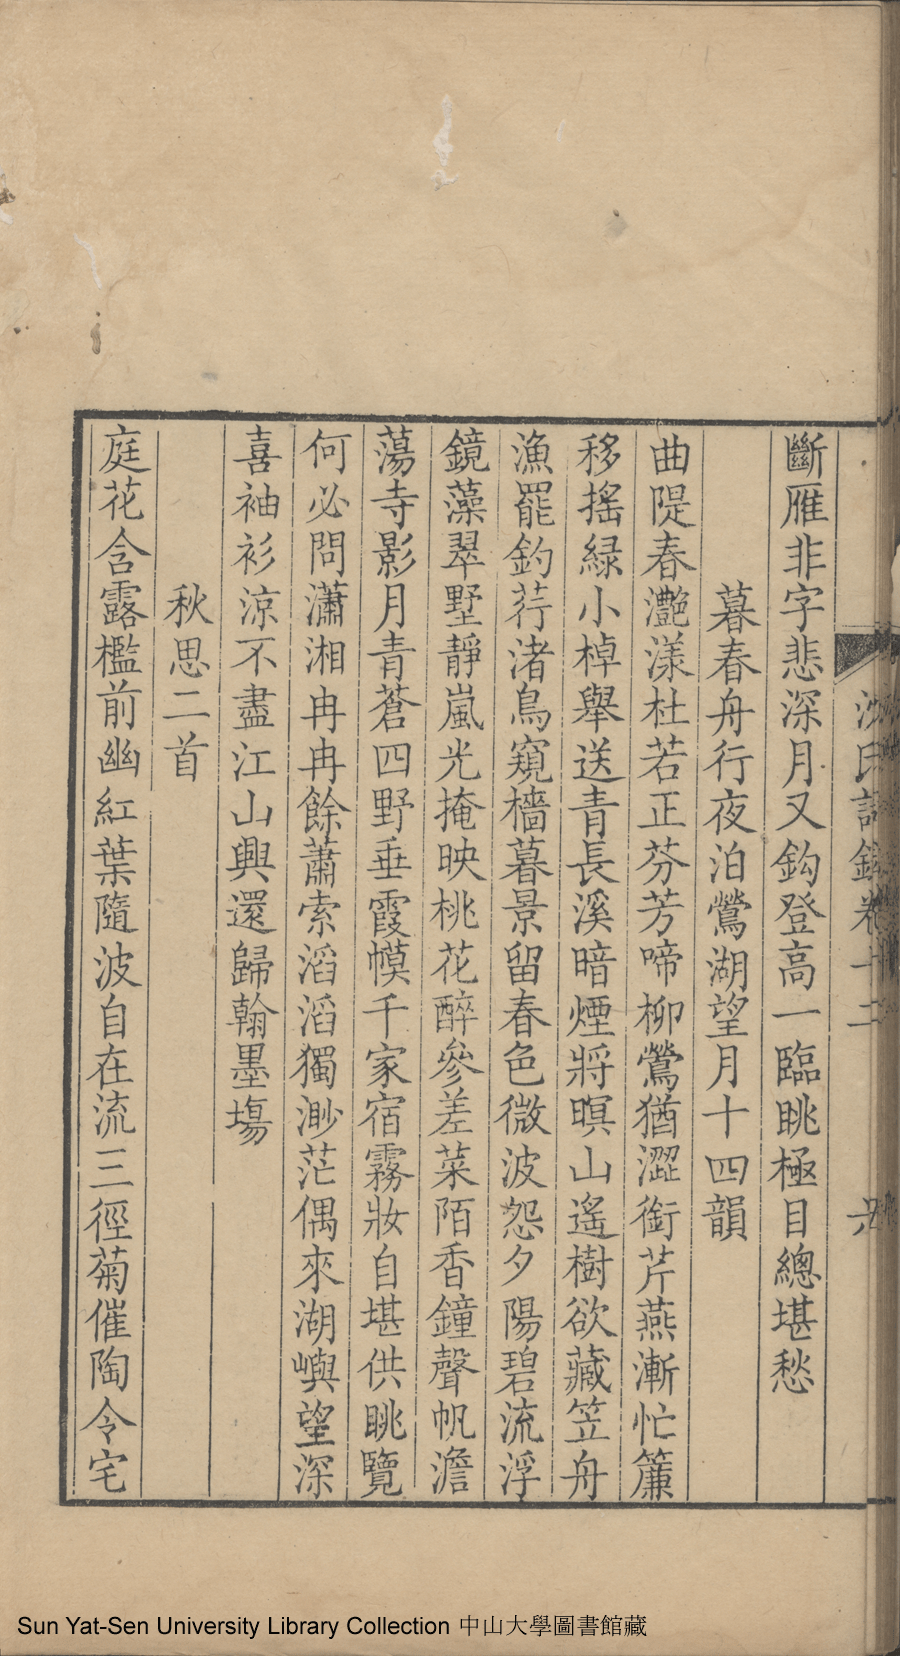 斷雁非字悲深月又鈎登高一臨眺極目總堪愁
暮春舟行夜泊鶯湖望月十四韻
曲隄春灧漾杜若正芬芳啼柳鶯猶澀銜芹燕漸忙簾
移搖緑小棹舉送青長溪暗煙將暝山遙樹欲藏笠舟
漁罷釣荇渚鳥窺檣暮景留春色微波怨夕陽碧流浮
鏡藻翠墅靜嵐光掩映桃花醉參差菜陌香鐘聲帆澹
蕩寺影月青蒼四野垂霞幙千家宿霧妝自堪供眺覽
何必問瀟湘冉冉餘蕭索滔滔獨渺茫偶來湖嶼望深
喜袖衫涼不盡江山興還歸翰墨塲
秋思二首
庭花含露檻前幽紅葉隨波自在流三徑菊催陶令宅
沈氏詩錄卷十二
Sun Yat-Sen University Library Collection 中山大學圖書館藏